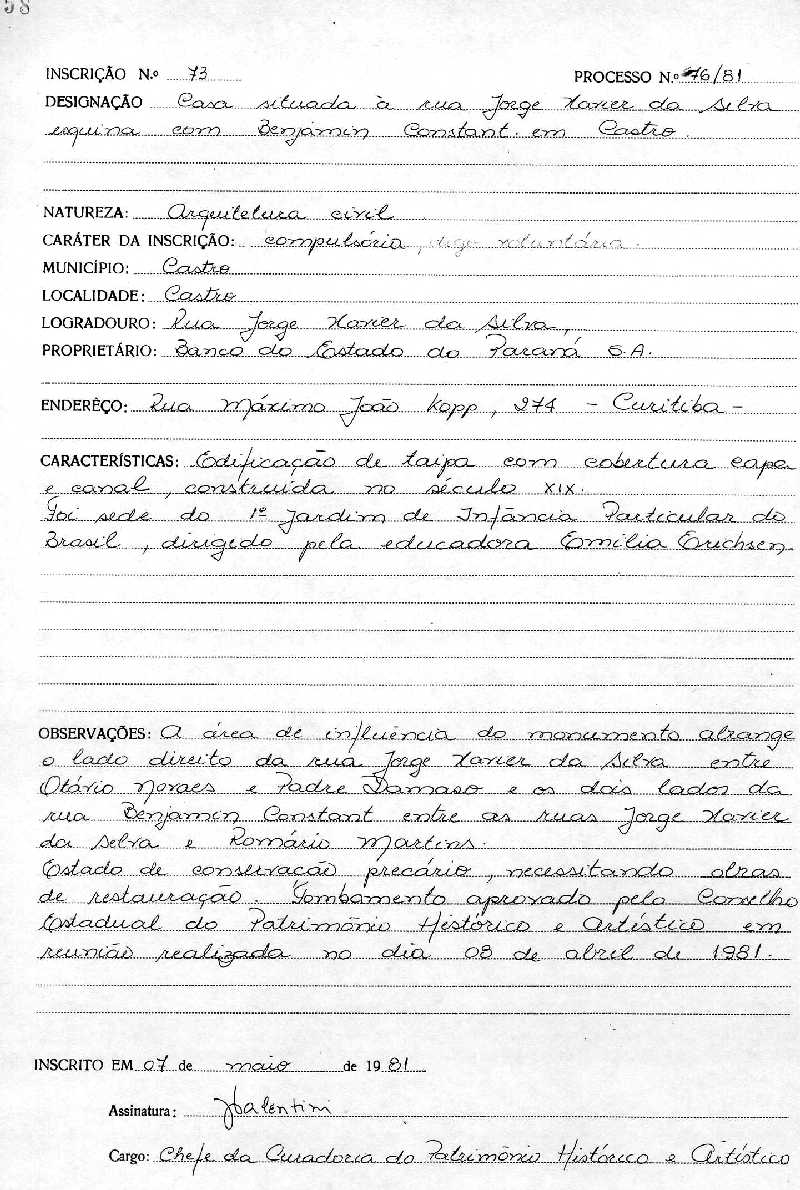 58
INSCRIÇÃO N.º 73 PROCESSO N.º 76/81
DESIGNAÇÃO Casa situada à rua Jorge Xavier da Silva
esquina com Benjamin Constant em Castro.
NATUREZA: Arquitetura civil
CARÁTER DA INSCRIÇÃO: compulsória, digo voluntária.
MUNICÍPIO: Castro
LOCALIDADE: Castro
LOGRADOURO: Rua Jorge Xavier da Silva,
PROPRIETÁRIO: Banco do Estado do Paraná S.A.
ENDERÊÇO: Rua Máximo João Kopp, 274 - Curitiba -
CARACTERÍSTICAS: Edificação de taipa com cobertura capa
e canal, construída no século XIX.
Foi sede do 1º Jardim de Infância Particular do
Brasil, dirigido pela educadora Emilia Erichsen
OBSERVAÇÕES: A área de influência do monumento abrange
o lado direito da rua Jorge Xavier da Silva entre
Otávio Novaes e Padre Damaso e os dois lados da
rua Benjamin Constant entre as ruas Jorge Xavier
da Silva e Romário Martins.
Estado de conservação precário, necessitando obras
de restauração. Tombamento aprovado pelo Conselho
Estadual do Patrimônio Histórico e Artístico em
reunião realizada no dia 08 de abril de 1981.
INSCRITO EM 07 de maio de 1981
Assinatura:
Cargo: Chefe da Curadoria do Patrimônio Histórico e Artístico